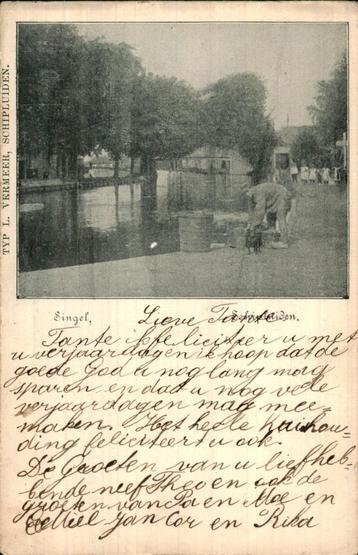 TYP L. VERMEER, SCHIPLUIDEN.
Singel, Schipluiden.
Lieve Tante
Tante ik feliciteer u met
u verjaardag en ik hoop dat de
goede God u nog lang mag
sparen en dat u nog vele
verjaardagen mag mee-
maken. Het heele huishou-
ding feliciteert u ook.
De Groeten van u liefheb-
bende neef Theo en ook de
groeten van Pa en Moe en
Jan Cor en Rika